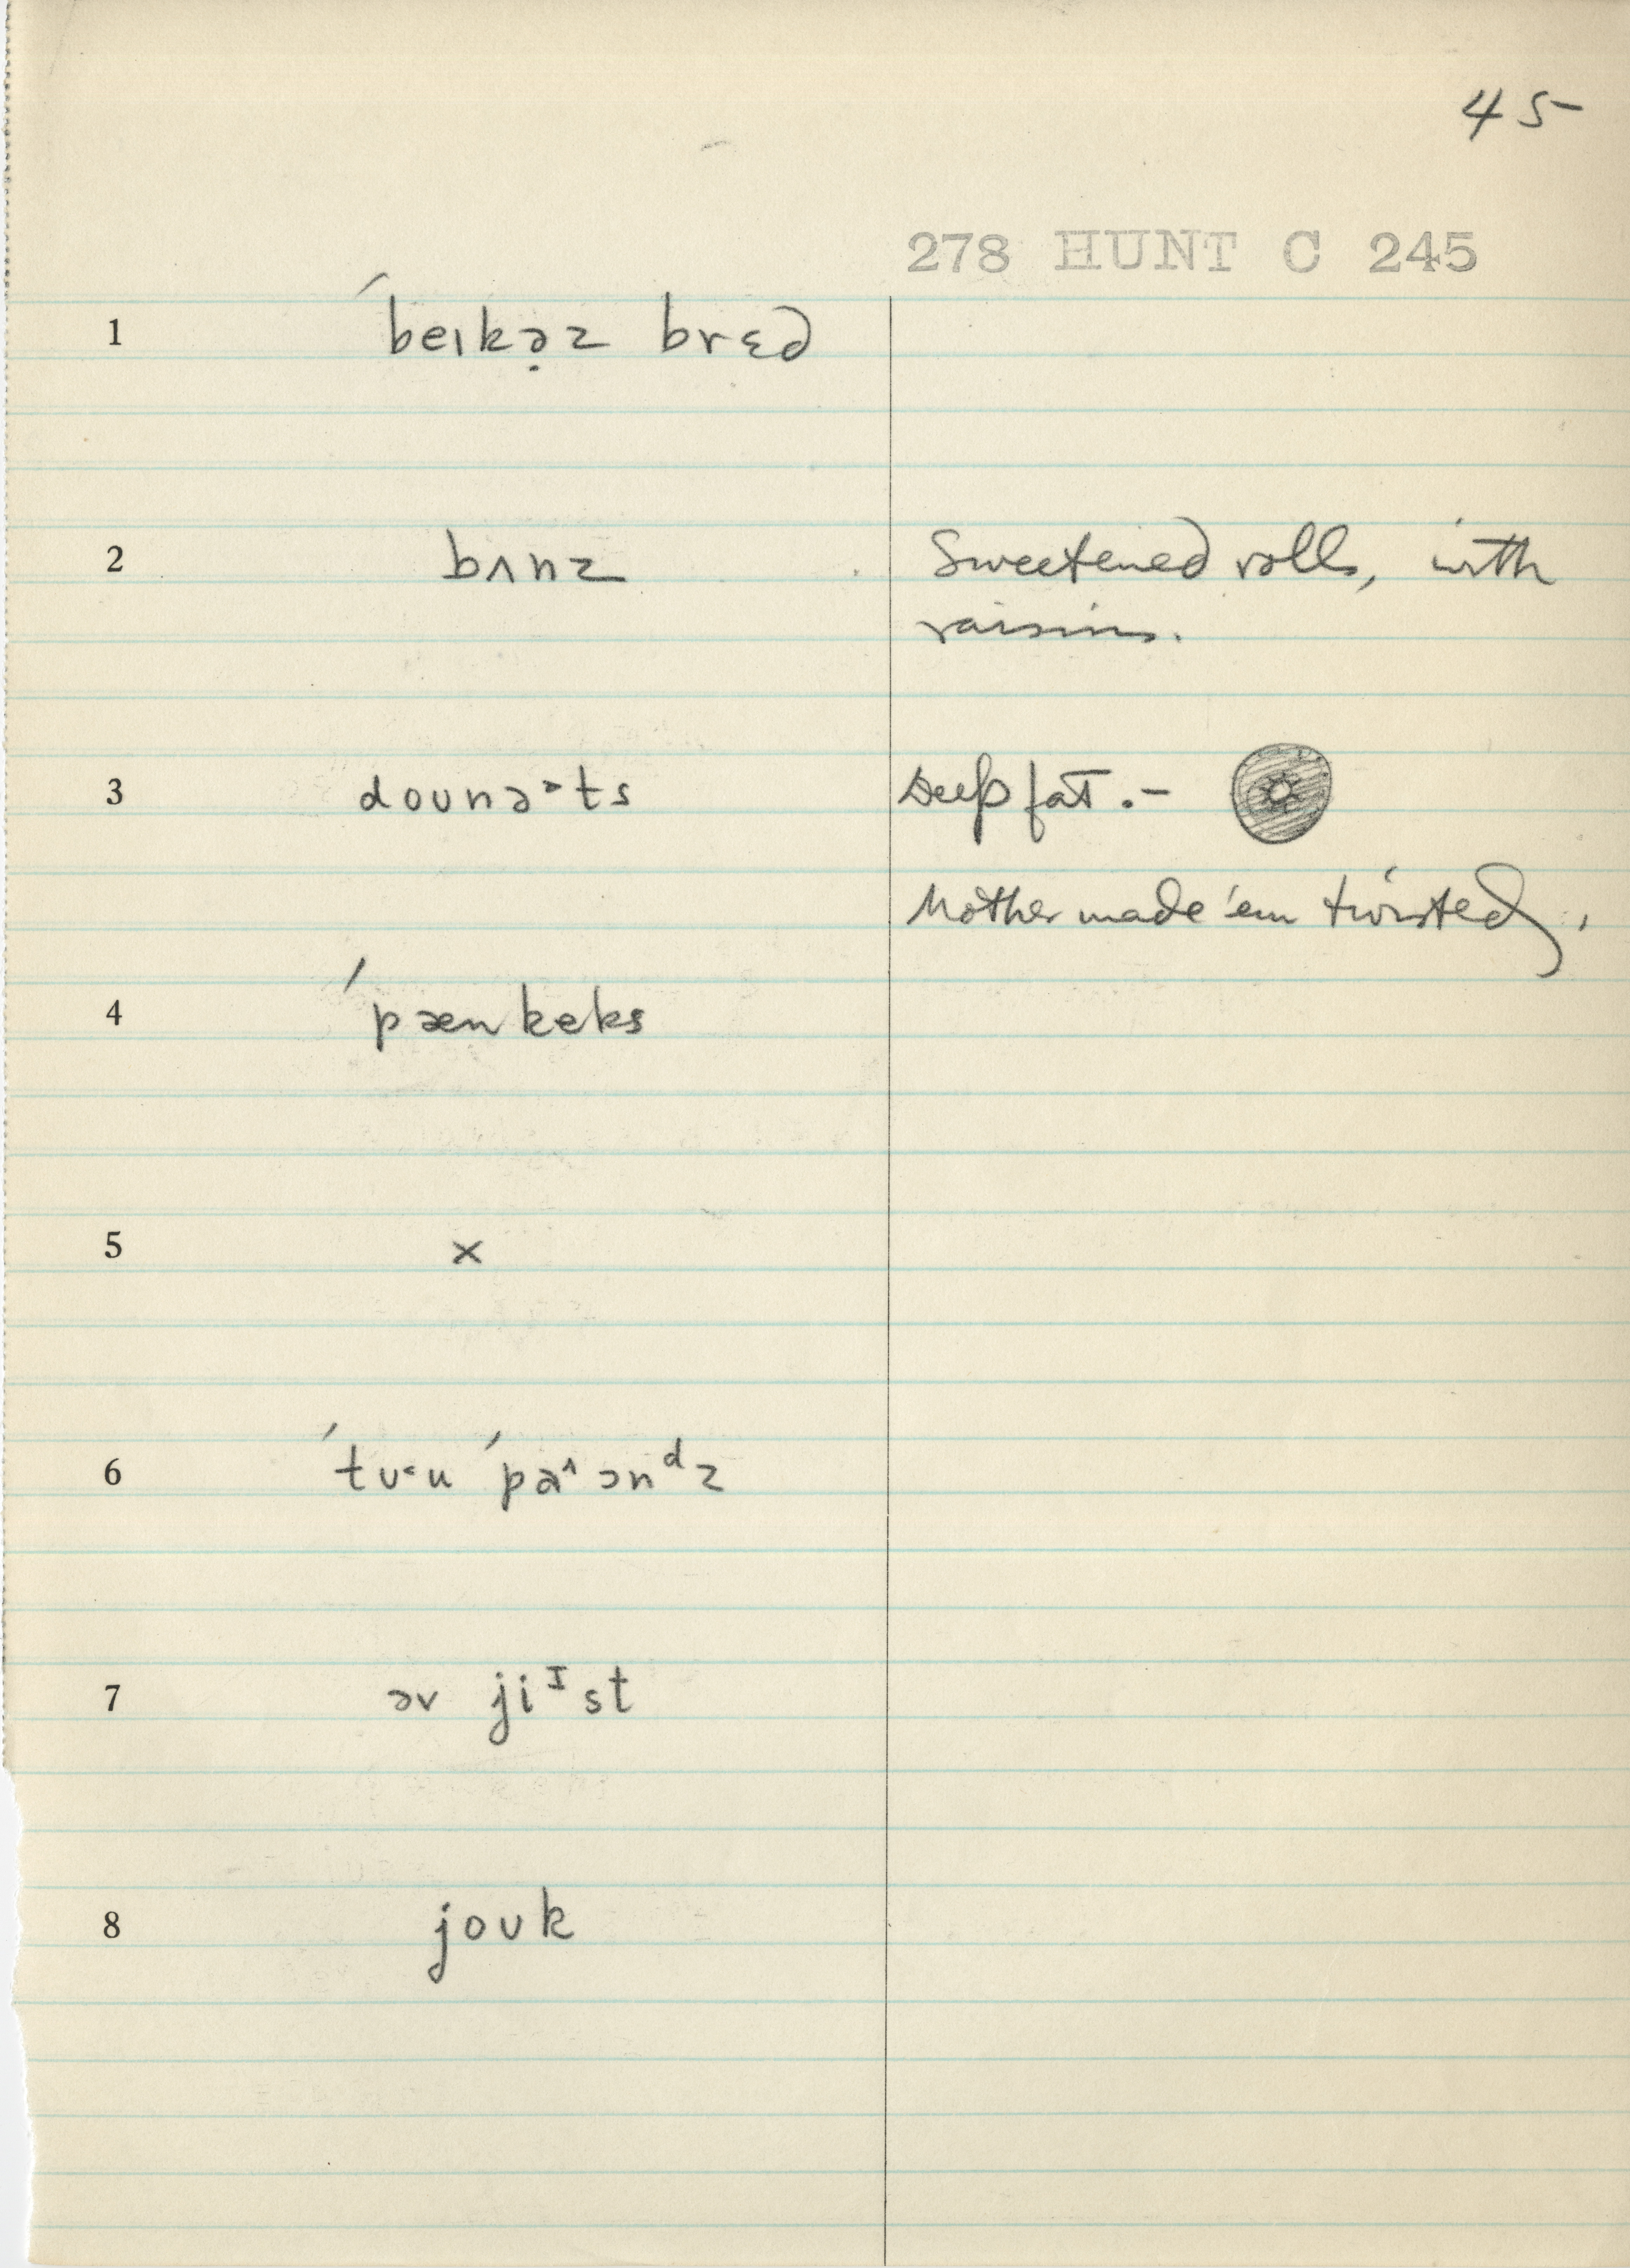 45
278 HUNT C 245
1 ˊbeɪkə̣z brɛd
2 bʌnz Sweetened rolls, with
raisins.
3 doʊnə˃ts Deep fat.–
Mother made 'em twisted.
4 ˊpænkeks
5 x
6 ˊtʊ˂u ˊpa^ənᵈz
7 əv jiᴵst
8 joʊk